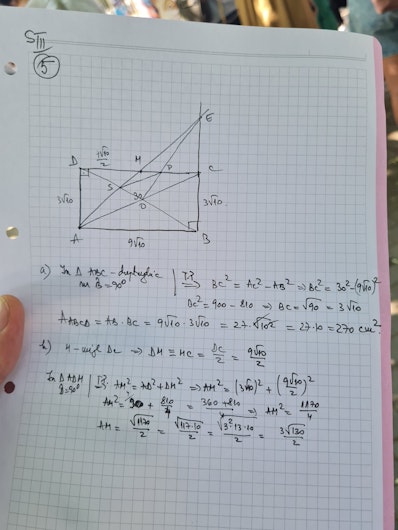 S III
5
E
D
9√10/2
M
P
C
S
3√10
30
O
3√10
A
9√10
B
a) În Δ ABC - dreptunghic | T.P. ⇒ BC² = AC² - AB² ⇒ BC² = 30² - (9√10)²
m B̂ = 90° BC² = 900 - 810 ⇒ BC = √90 = 3√10
A ABCD = AB · BC = 9√10 · 3√10 = 27 · √10² = 27 · 10 = 270 cm².
b) M - mijl DC ⇒ DM ≡ MC = DC/2 = 9√10/2
În Δ ADM | T.P. AM² = AD² + DM² ⇒ AM² = (3√10)² + (9√10/2)²
D̂ = 90° AM² = 90 + 810/4 = 360 + 810/4 ⇒ AM² = 1170/4
AM = √1170/2 = √117·10/2 = √3²·13·10/2 = 3√130/2